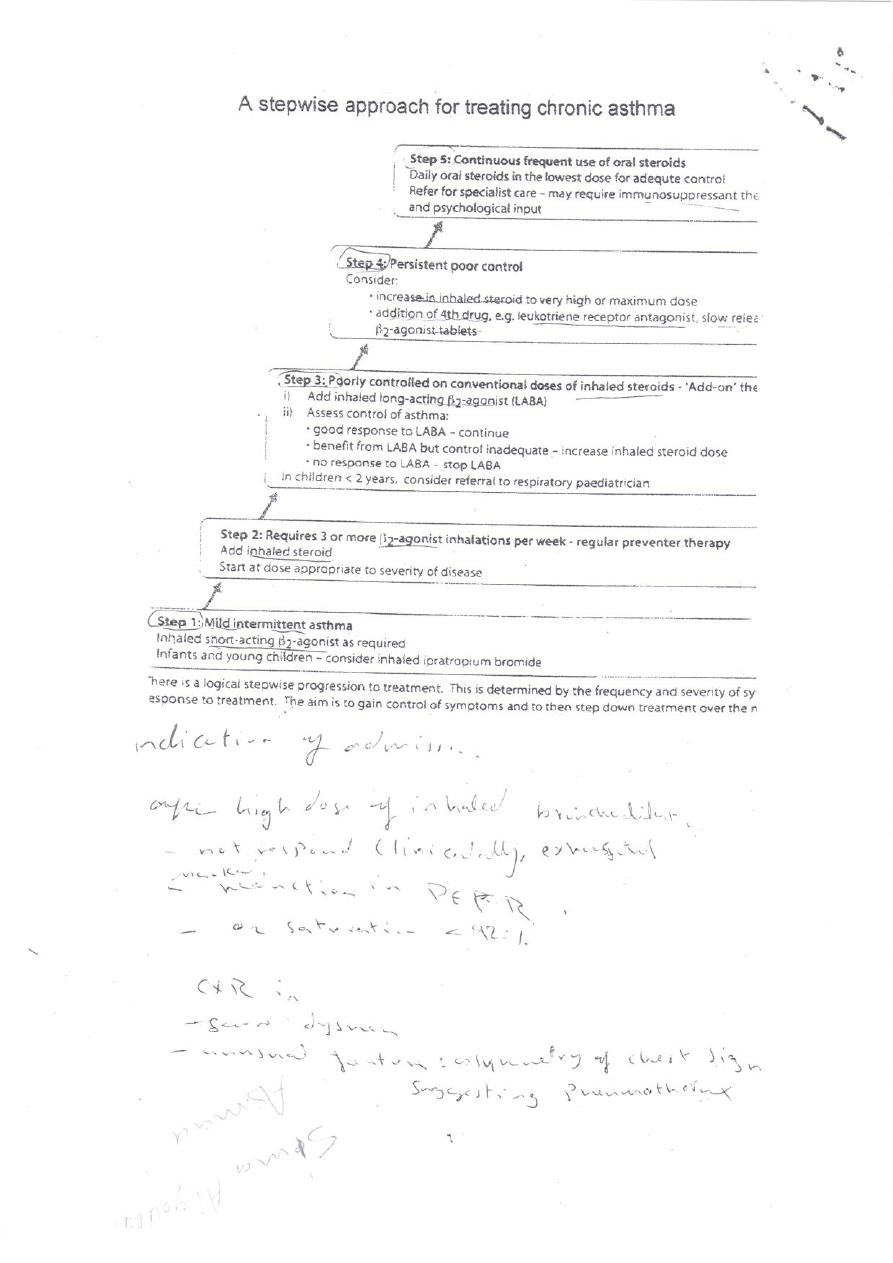 A stepwise approach for treating chronic asthma
Step 5: Continuous frequent use of oral steroids
Daily oral steroids in the lowest dose for adequte control
Refer for specialist care – may require immunosuppressant the
and psychological input
Step 4: Persistent poor control
Consider:
• increase in inhaled steroid to very high or maximum dose
• addition of 4th drug, e.g. leukotriene receptor antagonist, slow relea
β2-agonist tablets
Step 3: Poorly controlled on conventional doses of inhaled steroids - 'Add-on' the
i) Add inhaled long-acting β2-agonist (LABA)
ii) Assess control of asthma:
• good response to LABA – continue
• benefit from LABA but control inadequate – increase inhaled steroid dose
• no response to LABA – stop LABA
In children < 2 years, consider referral to respiratory paediatrician
Step 2: Requires 3 or more β2-agonist inhalations per week - regular preventer therapy
Add inhaled steroid
Start at dose appropriate to severity of disease
Step 1: Mild intermittent asthma
Inhaled short-acting β2-agonist as required
Infants and young children – consider inhaled ipratropium bromide
here is a logical stepwise progression to treatment. This is determined by the frequency and severity of sy
esponse to treatment. The aim is to gain control of symptoms and to then step down treatment over the n
indication of admission
high dose of inhaled
- not respond clinically, exhausted
- reduction in PEFR
- O2 saturation < 92%
CXR in
- dysnea
- unusual feature: asymmetry of chest sign
suggesting Pneumothorax